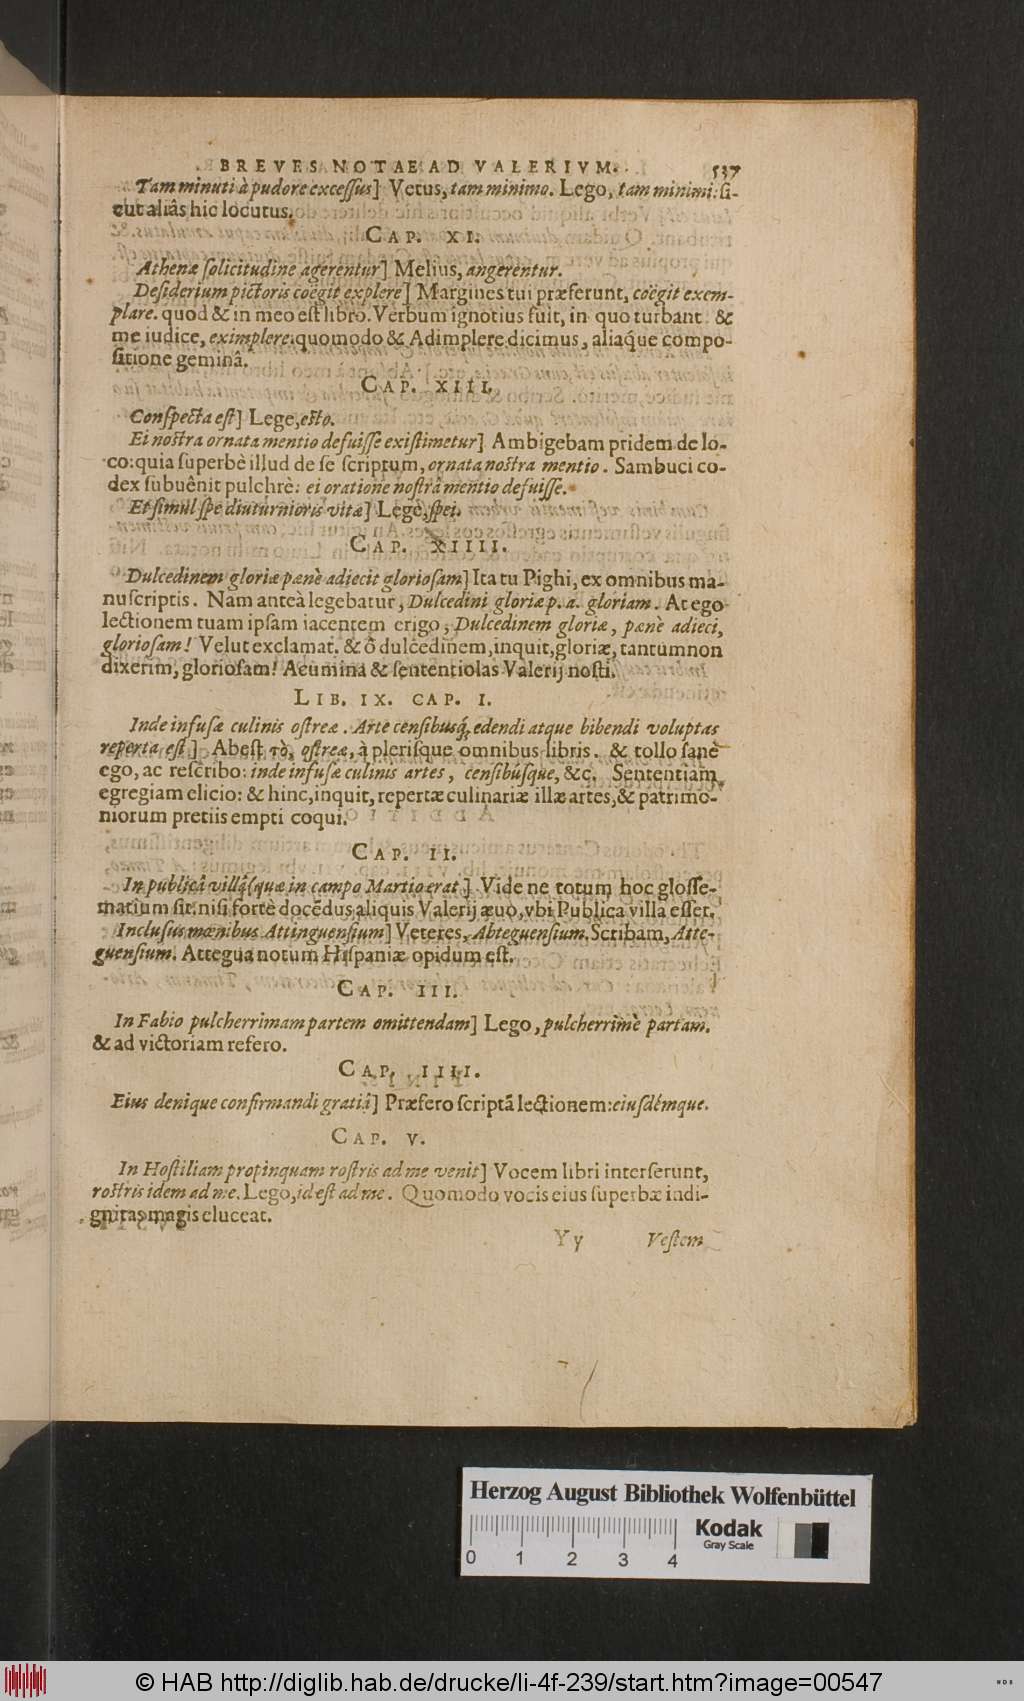 BREVES NOTAE AD VALERIVM. 537
Tam minuti à pudore excessus] Vetus, tam minimo. Lego, tam minimi: si-
cut aliâs hic locutus.
CAP. XI.
Athenæ solicitudine agerentur] Melius, angerentur.
Desiderium pictoris coëgit explere] Margines tui præferunt, coëgit exem-
plare. quod & in meo est libro. Verbum ignotius fuit, in quo turbant: &
me iudice, eximplere: quomodo & Adimplere dicimus, aliaq́ue compo-
sitione geminâ.
CAP. XIII.
Conspecta est] Lege, esto.
Ei nostra ornata mentio defuisse existimetur] Ambigebam pridem de lo-
co: quia superbè illud de se scriptum, ornata nostra mentio. Sambuci co-
dex subuênit pulchrè: ei oratione nostrâ mentio defuisse.
Et simul spe diuturnioris vitæ] Lege, spei.
CAP. XIIII.
Dulcedinem gloriæ pænè adiecit gloriosam] Ita tu Pighi, ex omnibus ma-
nuscriptis. Nam anteà legebatur, Dulcedini gloriæ p. a. gloriam. At ego
lectionem tuam ipsam iacentem erigo, Dulcedinem gloriæ, pænè adieci,
gloriosam! Velut exclamat. & ô dulcedinem, inquit, gloriæ, tantumnon
dixerim, gloriosam! Acumina & sententiolas Valerij nosti.
LIB. IX. CAP. I.
Inde infusæ culinis ostreæ. Arte censibusq́, edendi atque bibendi voluptas
reperta est] Abest τὸ, ostreæ, à plerisque omnibus libris. & tollo sanè
ego, ac rescribo: inde infusæ culinis artes, censibúsque, &c. Sententiam
egregiam elicio: & hinc, inquit, repertæ culinariæ illæ artes, & patrimo-
niorum pretiis empti coqui.
CAP. II.
In publicâ villâ (quæ in campo Martio erat] Vide ne totum hoc glosse-
matium sit: nisi fortè docẽdus aliquis Valerij æuo, vbi Publica villa esset.
Inclusus mœnibus Attinguensium] Veteres, Abteguensium. Scribam, Atte-
guensium. Attegua notum Hispaniæ opidum est.
CAP. III.
In Fabio pulcherrimam partem omittendam] Lego, pulcherrimè partam.
& ad victoriam refero.
CAP. IIII.
Eius denique confirmandi gratiâ] Præfero scriptã lectionem: eiusdémque.
CAP. V.
In Hostiliam propinquam rostris ad me venit] Vocem libri interserunt,
rostris idem ad me. Lego, id est ad me. Quomodo vocis eius superbæ indi-
gnitas magis eluceat.
Yy Vestem
Herzog August Bibliothek Wolfenbüttel
Kodak
Gray Scale
0 1 2 3 4
© HAB http://diglib.hab.de/drucke/li-4f-239/start.htm?image=00547